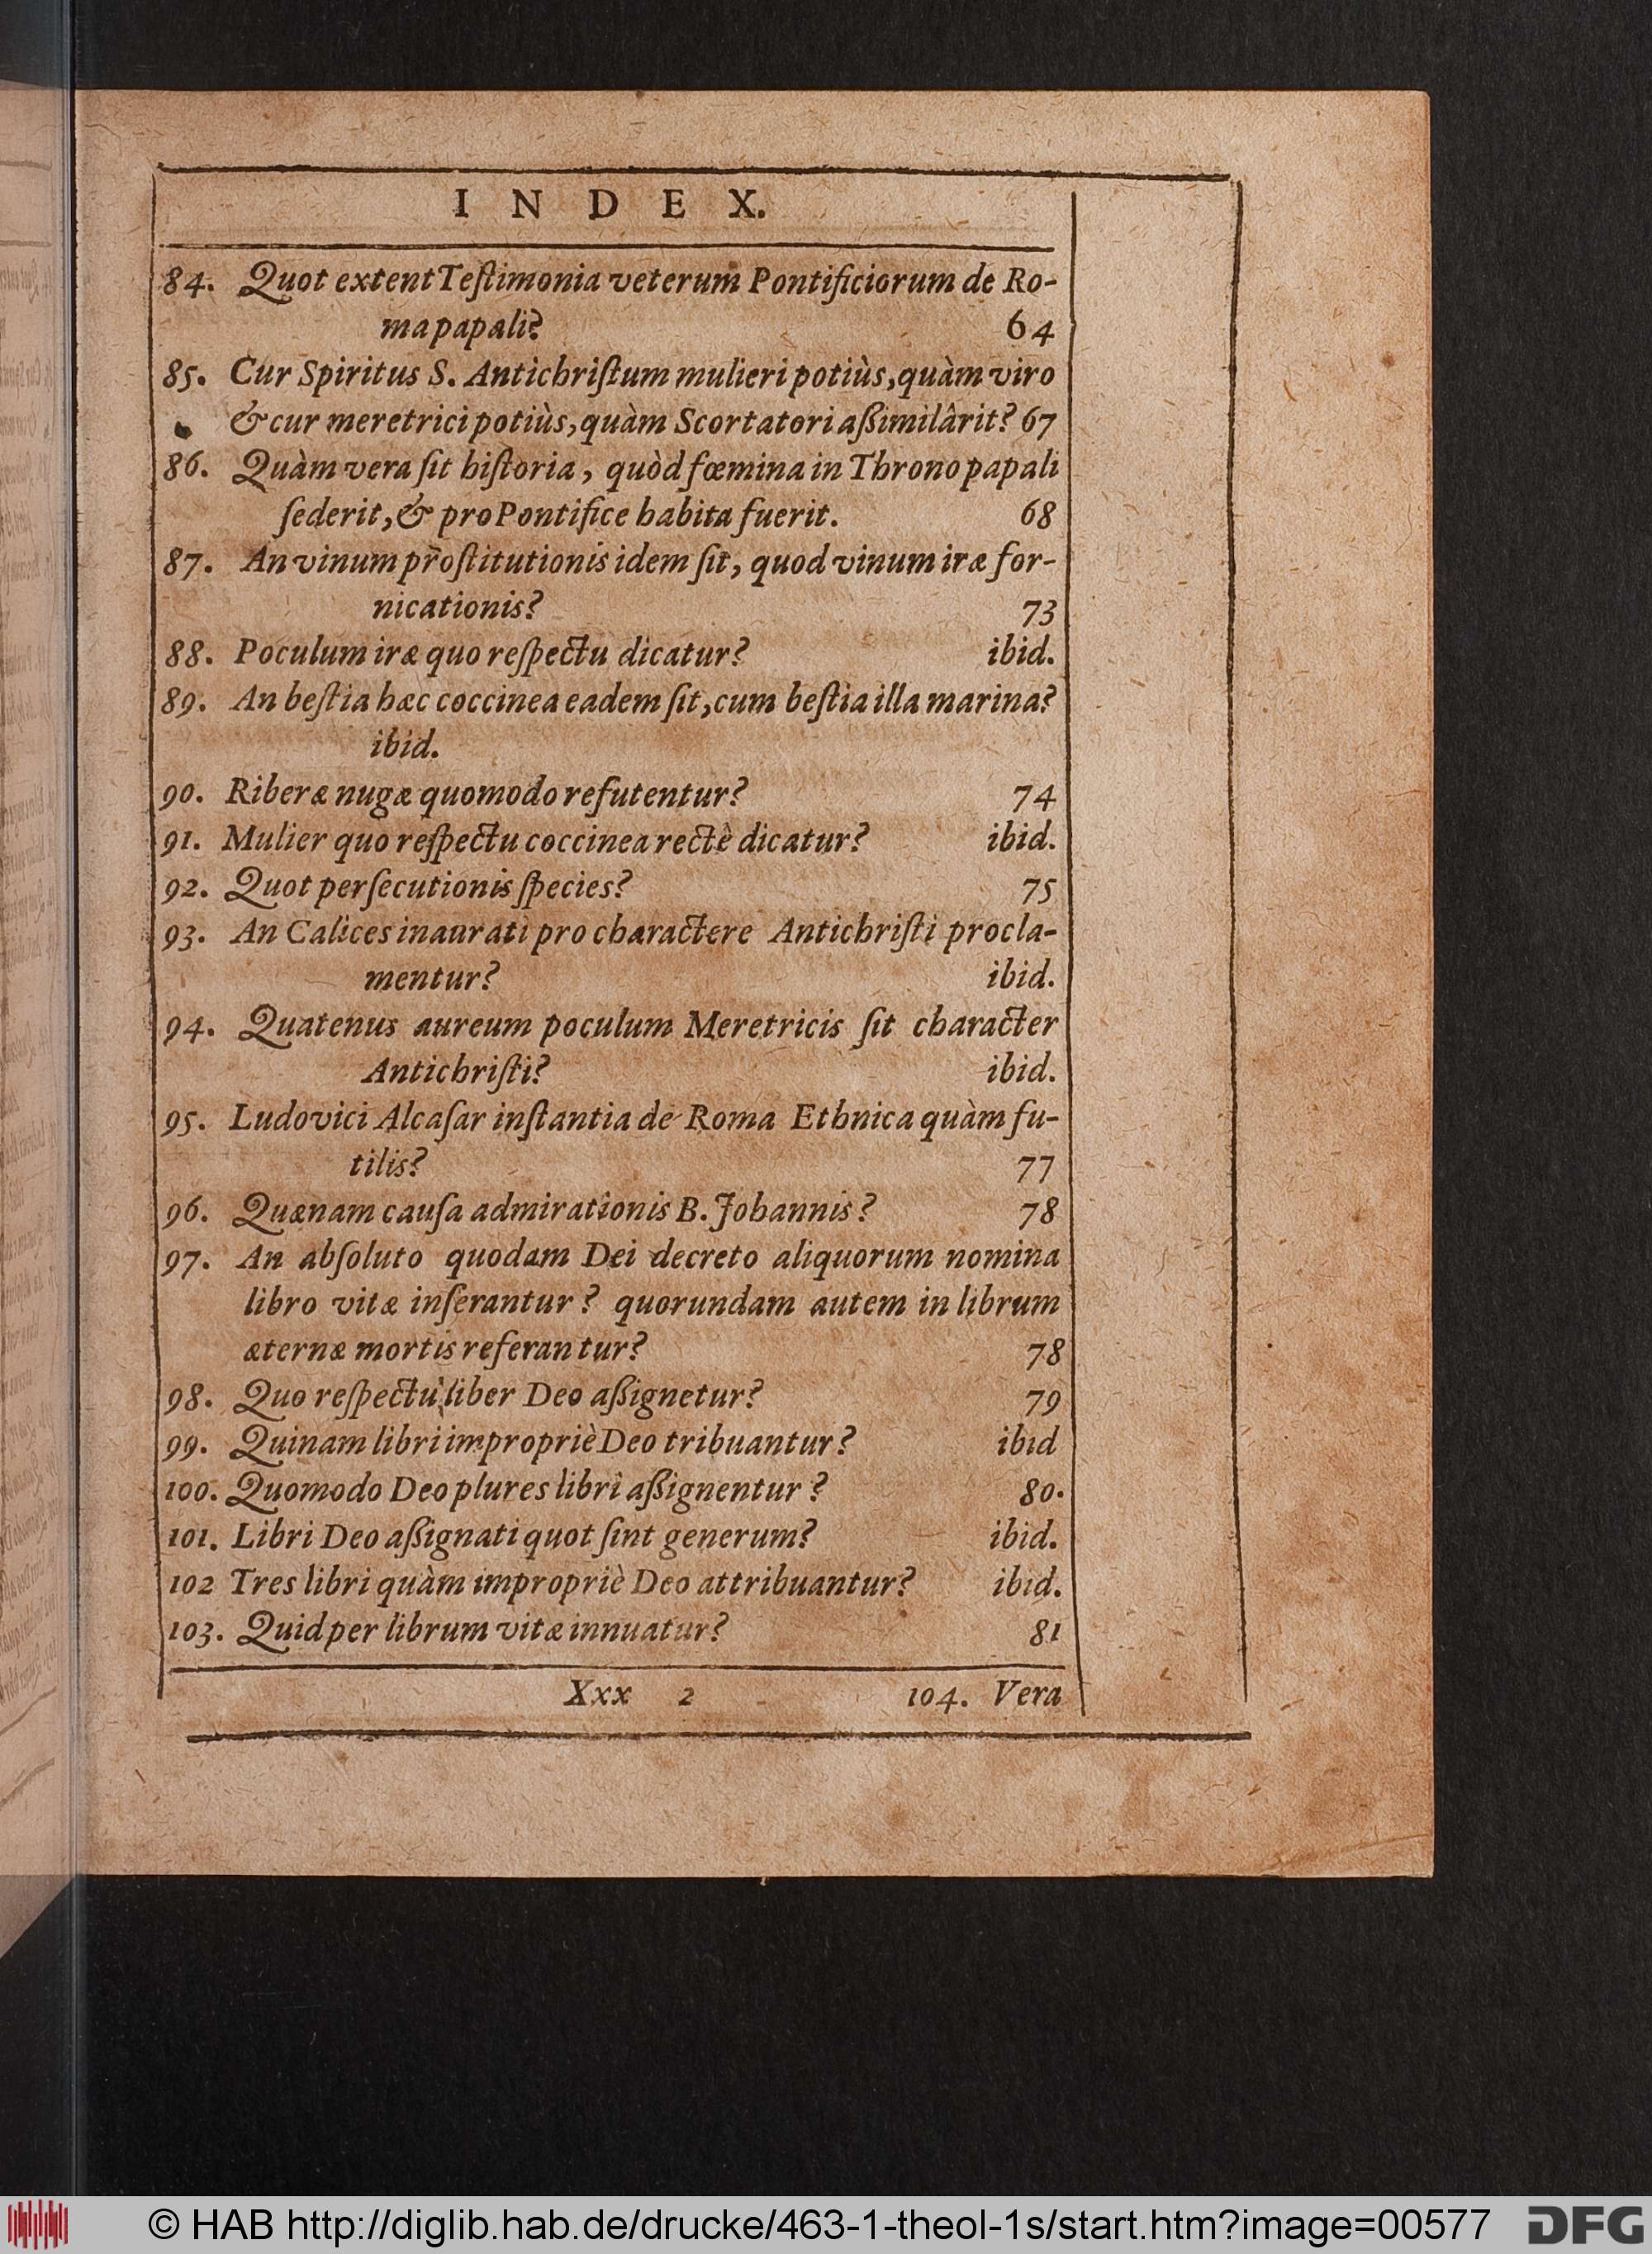 I N D E X.
84. Quot extent Teſtimonia veterum Pontificiorum de Ro-
ma papali? 64
85. Cur Spiritus S. Antichriſtum mulieri potiùs, quàm viro
& cur meretrici potiùs, quàm Scortatori aßimilârit? 67
86. Quàm vera ſit hiſtoria, quòd fœmina in Throno papali
ſederit, & pro Pontifice habita fuerit. 68
87. An vinum proſtitutionis idem ſit, quod vinum iræ for-
nicationis? 73
88. Poculum iræ quo reſpectu dicatur? ibid.
89. An beſtia hæc coccinea eadem ſit, cum beſtia illa marina?
ibid.
90. Riberæ nugæ quomodo refutentur? 74
91. Mulier quo reſpectu coccinea rectè dicatur? ibid.
92. Quot perſecutionis ſpecies? 75
93. An Calices inaurati pro charactere Antichriſti procla-
mentur? ibid.
94. Quatenus aureum poculum Meretricis ſit character
Antichriſti? ibid.
95. Ludovici Alcaſar inſtantia de Roma Ethnica quàm fu-
tilis? 77
96. Quænam cauſa admirationis B. Johannis? 78
97. An abſoluto quodam Dei decreto aliquorum nomina
libro vitæ inſerantur? quorundam autem in librum
æternæ mortis referantur? 78
98. Quo reſpectu liber Deo aßignetur? 79
99. Quinam libri impropriè Deo tribuantur? ibid
100. Quomodo Deo plures libri aßignentur? 80.
101. Libri Deo aßignati quot ſint generum? ibid.
102 Tres libri quàm impropriè Deo attribuantur? ibid.
103. Quid per librum vitæ innuatur? 81
Xxx 2 104. Vera
© HAB http://diglib.hab.de/drucke/463-1-theol-1s/start.htm?image=00577 DFG